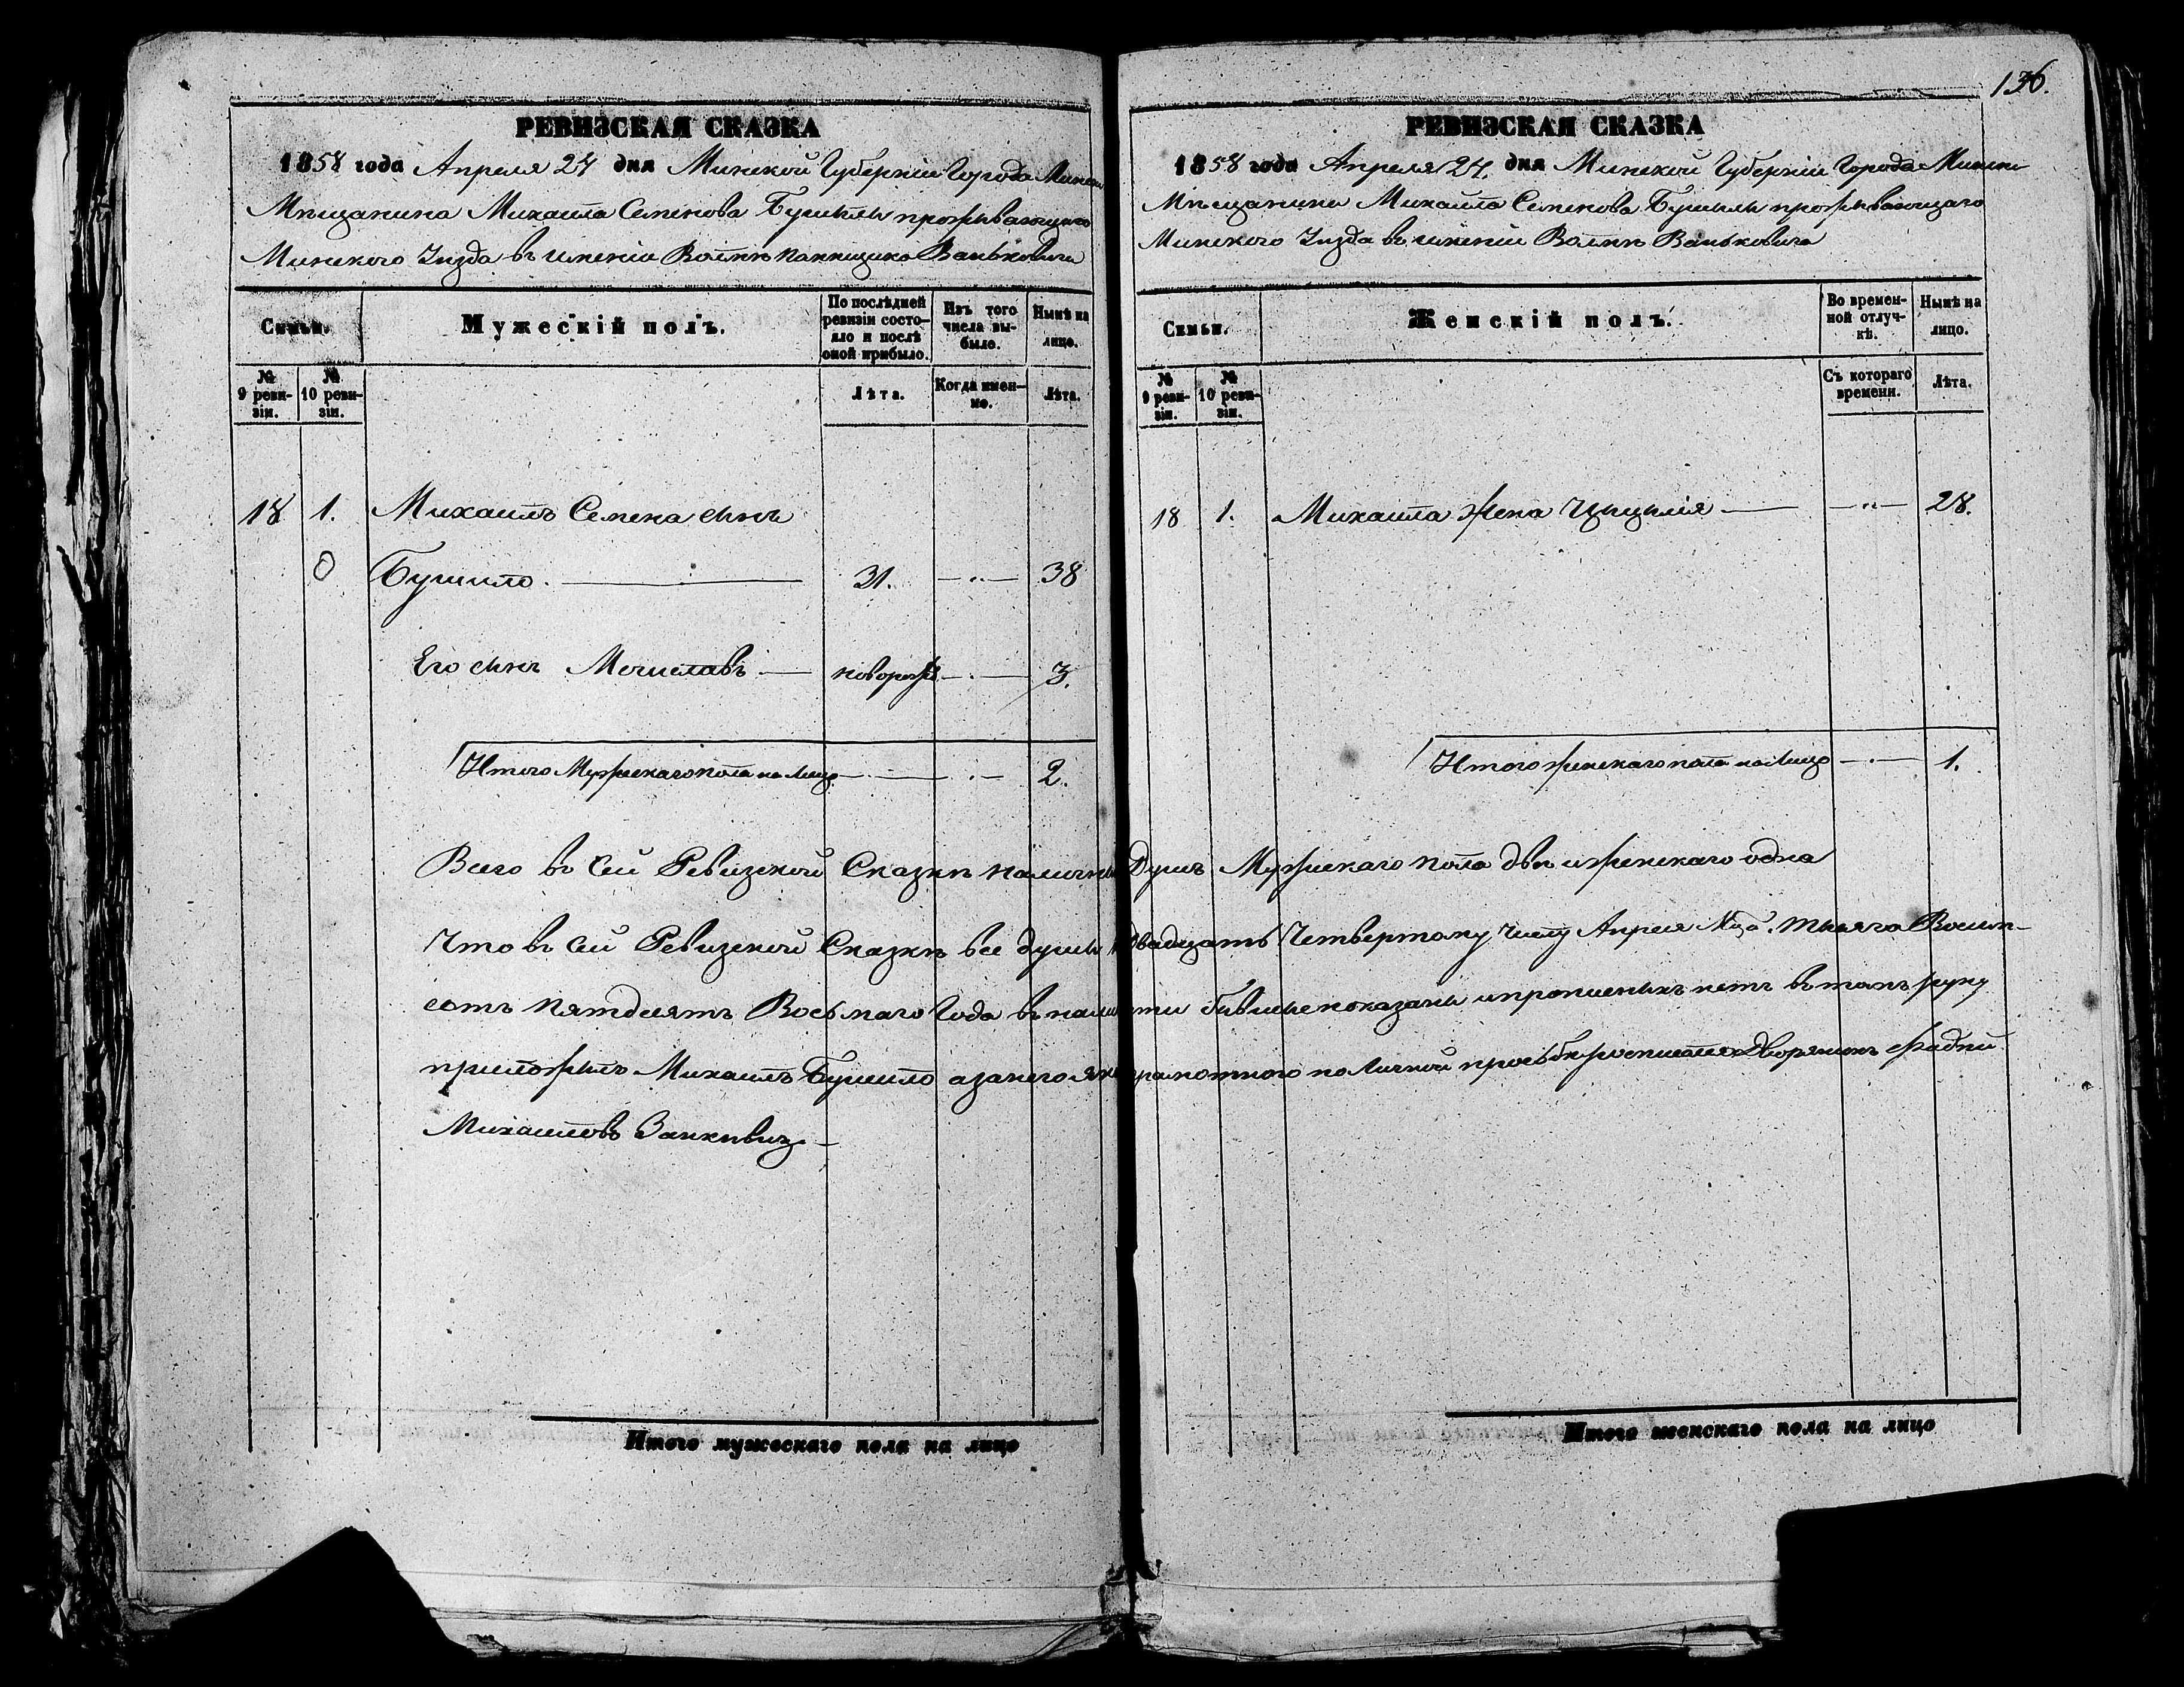 136.
РЕВИЗСКАЯ СКАЗКА
1858 года Апреля 24 дня Минской Губерніи Города Минска
Мѣщанина Михаила Семенова Бушилы проживающаго
Минскаго Уѣзда въ имѣніи Волкѣ помѣщика Ваньковича
Семьи.
Мужескій полъ.
По послѣдней ревизіи состояло и послѣ оной прибыло.
Изъ того числа выбыло.
Нынѣ на лицо.
№ 9 ревизіи.
№ 10 ревизіи.
Лѣта.
Когда именно.
Лѣта.
18 1. Михаилъ Семена сынъ
0 Бушило. 31. — " — 38
Его сынъ Мечиславъ — новорож — 3.
Итого Мужескаго пола на Лицо — 2.
РЕВИЗСКАЯ СКАЗКА
1858 года Апреля 24. дня Минской Губерніи Города Минска
Мѣщанина Михаила Семенова Бушилы проживающаго
Минскаго Уѣзда въ имѣніи Волкѣ Ваньковича
Семьи.
Женскій полъ.
Во временной отлучкѣ.
Нынѣ на лицо.
№ 9 ревизіи.
№ 10 ревизіи.
Съ котораго времени.
Лѣта.
18 1. Михаила жена Цыцылія — — " — 28.
Итого женскаго пола на Лицо — 1.
Всего въ сей Ревизской Сказкѣ наличныхъ Душъ Мужескаго пола двѣ и женскаго одна
Что въ сей Ревизской Сказкѣ все души двадцать Четвертому Числу Апреля Мца. тысяча Восем-
сотъ пятдесятъ Восьмаго Года въ наличности бывшие показаны и прописныхъ нетъ въ томъ руку
приложилъ Михаилъ Бушило а за него неграмотного по Личной прозбѣ росписался Дворянинъ
Михаиловъ
Итого мужескаго пола на лицо
Итого женскаго пола на лицо